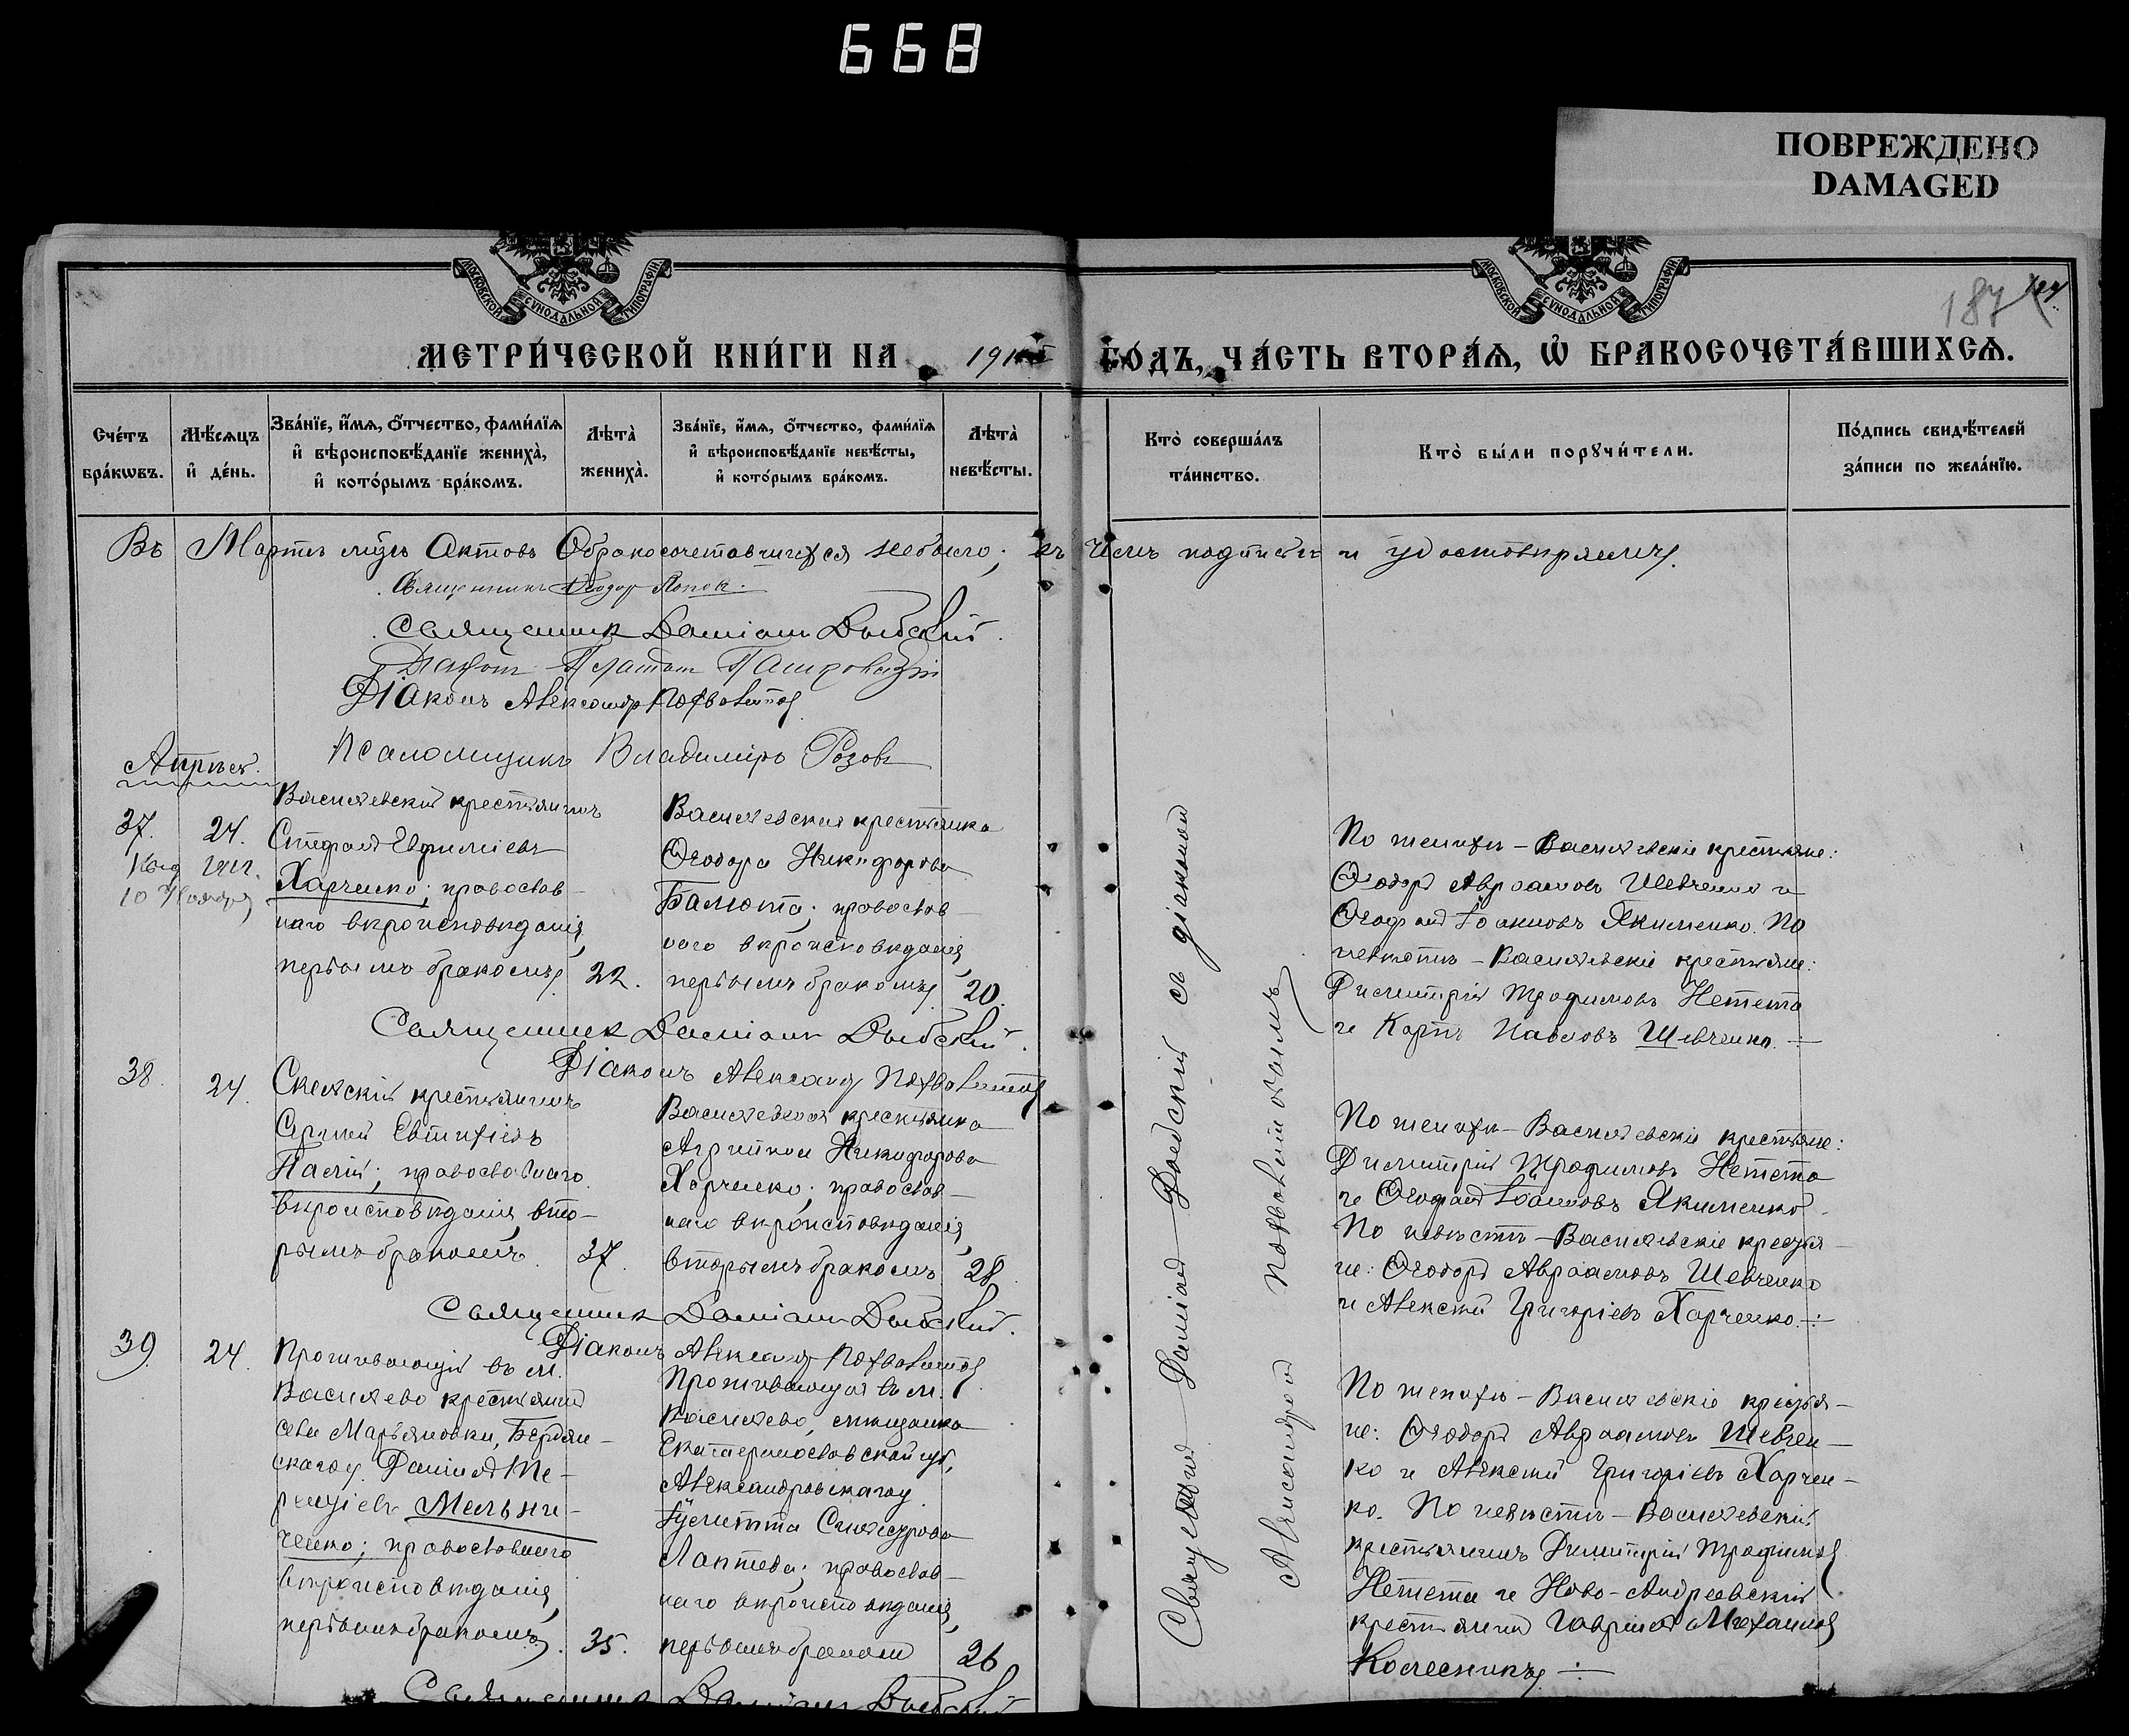 668
ПОВРЕЖДЕНО
DAMAGED
МОСКОВСКОЙ СѴНОДАЛЬНОЙ ТИПОГРАФІИ
МОСКОВСКОЙ СѴНОДАЛЬНОЙ ТИПОГРАФІИ
187
МЕТРИ́ЧЕСКОЙ КНИ́ГИ НА 191
ГО́ДЪ, ЧА́СТЬ ВТОРА́Ѧ, Ѡ҆ БРАКОСОЧЕТА́ВШИХСѦ.
Сче́тъ
бра́кѡвъ.
Мѣ́сѧцъ
и҆ де́нь.
Зва́нїе, и҆́мѧ, ѻ҆́тчество, фами́лїѧ
и҆ вѣроисповѣ́данїе жениха̀,
и҆ кото́рымъ бра́комъ.
Лѣта̀
жениха̀.
Зва́нїе, и҆́мѧ, ѻ҆́тчество, фами́лїѧ
и҆ вѣроисповѣ́данїе невѣ́сты,
и҆ кото́рымъ бра́комъ.
Лѣта̀
невѣ́сты.
Кто̀ соверша́лъ
та́инство.
Кто̀ бы́ли порꙋчи́тели.
По́дпись свидѣ́телей
за́писи по жела́нїю.
Въ Мартѣ мцѣ актовъ о бракосочетавшихся небыло; въ чемъ подписью и удостовѣряемъ.
Священникъ Ѳеодоръ Поповъ.
Священникъ Даміанъ
Платонъ
Діаконъ Александръ Похвалитовъ
Псаломщикъ Владиміръ Розовъ
Апрѣль.
37.
24.
10 Ноября
Васильевскій крестьянинъ
Стефанъ Евфиміевъ
Харченко; православ-
наго вѣроисповѣданія,
первымъ бракомъ.
22.
Васильевская крестьянка
Ѳеодора Никифорова
Балюта; православ-
наго вѣроисповѣданія,
первымъ бракомъ.
20.
По женихѣ – Васильевскіе крестьяне:
Ѳеодоръ Авраамовъ Шевченко и
Ѳеофанъ Іоанновъ Якименко. По
невѣстѣ – Васильевскіе крестьяне:
Димитрій Трофимовъ Нетета
и Карпъ Павловъ Шевченко.
Священникъ Даміанъ
Діаконъ Александръ Похвалитовъ
38.
24.
Скельскій крестьянинъ
Сергій Евтихіевъ
Палій; православнаго
вѣроисповѣданія, вто-
рымъ бракомъ.
37.
Васильевская крестьянка
Агриппина Никифорова
Харченко; православ-
наго вѣроисповѣданія,
вторымъ бракомъ
28.
По женихѣ – Васильевскіе крестьяне:
Димитрій Трофимовъ Нетета
и Ѳеофанъ Іоанновъ Якименко.
По невѣстѣ – Васильевскіе крестья-
не: Ѳеодоръ Авраамовъ Шевченко
и Алексѣй Григоріевъ Харченко.
Священникъ Даміанъ
Діаконъ Александръ Похвалитовъ
39.
24.
Проживающій въ м.
Васильево крестьянинъ
села Марьяновки, Бердян-
скаго у. Даніилъ Те-
рентіевъ Мельни-
ченко; православнаго
вѣроисповѣданія,
первымъ бракомъ.
35.
Проживающая въ м.
Васильево, мѣщанка
Екатеринославской губ.
Александровскаго у.
Іулитта
Лаптева; православ-
наго вѣроисповѣданія,
первымъ бракомъ
26
По женихѣ – Васильевскіе крестья-
не: Ѳеодоръ Авраамовъ Шевчен-
ко и Алексѣй Григоріевъ Харчен-
ко. По невѣстѣ – Васильевскій
крестьянинъ Димитрій Трофимовъ
Нетета и Ново-Андреевскій
крестьянинъ Гавріилъ Михаиловъ
Колесникъ.
Священникъ Даміанъ
Священникъ Даміанъ съ діакономъ
Александромъ Похвалитовымъ